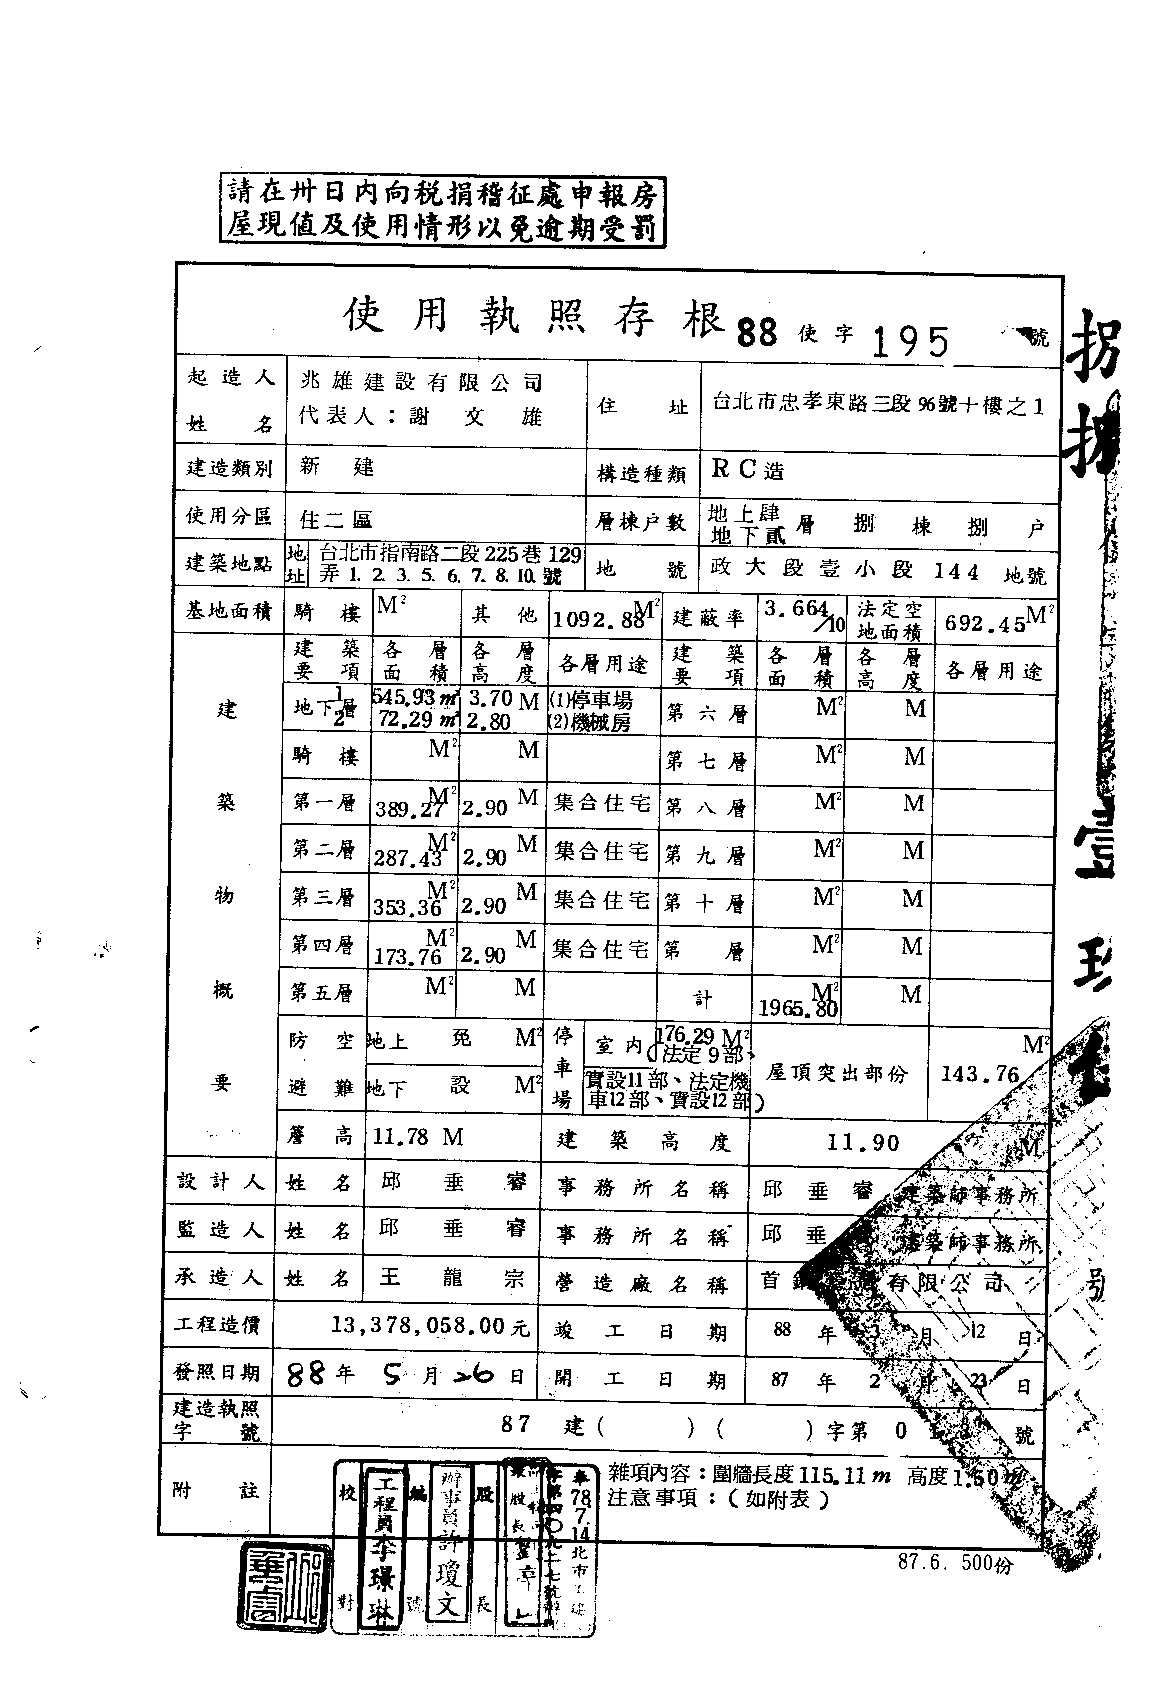 請在卅日內向稅捐稽征處申報房
屋現值及使用情形以免逾期受罰
使用執照存根 88 使字 195 號
起造人姓名 兆雄建設有限公司 代表人：謝文雄 住址 台北市忠孝東路三段96號十樓之1
建造類別 新建 構造種類 RC造
使用分區 住二區 層棟戶數 地上肆 地下貳 層 捌 棟 捌 戶
建築地點 地址 台北市指南路二段225巷129
弄1.2.3.5.6.7.8.10.號 地號 政大段壹小段144地號
基地面積 騎樓 M² 其他 1092.88 M² 建蔽率 3.664/10 法定空地面積 692.45 M²
建築物概要
建築要項 各層面積 各層高度 各層用途 建築要項 各層面積 各層高度 各層用途
地下1層 545.93㎡ 3.70 M (1)停車場 第六層 M² M
2 72.29㎡ 2.80 (2)機械房
騎樓 M² M 第七層 M² M
第一層 389.27 M² 2.90 M 集合住宅 第八層 M² M
第二層 287.43 M² 2.90 M 集合住宅 第九層 M² M
第三層 353.36 M² 2.90 M 集合住宅 第十層 M² M
第四層 173.76 M² 2.90 M 集合住宅 第 層 M² M
第五層 M² M 計 1965.80 M² M
防空避難 地上 免 M² 停車場 室內 176.29 M² 屋頂突出部份 143.76 M²
(法定9部、
地下 設 M² 實設11部、法定機
車12部、實設12部)
簷高 11.78 M 建築高度 11.90 M
設計人 姓名 邱垂睿 事務所名稱 邱垂睿建築師事務所
監造人 姓名 邱垂睿 事務所名稱 邱垂 建築師事務所
承造人 姓名 王龍宗 營造廠名稱 首 有限公司
工程造價 13,378,058.00元 竣工日期 88年3月12日
發照日期 88年5月26日 開工日期 87年2月23日
建造執照字號 87 建( )( )字第0 號
附註 雜項內容：圍牆長度115.11m 高度1.50m
注意事項：(如附表)
校對 工程員李璟琳 編號 辦事員許瓊文 股長
78.7.14北市工建
87.6. 500份
捌捌壹玖 號